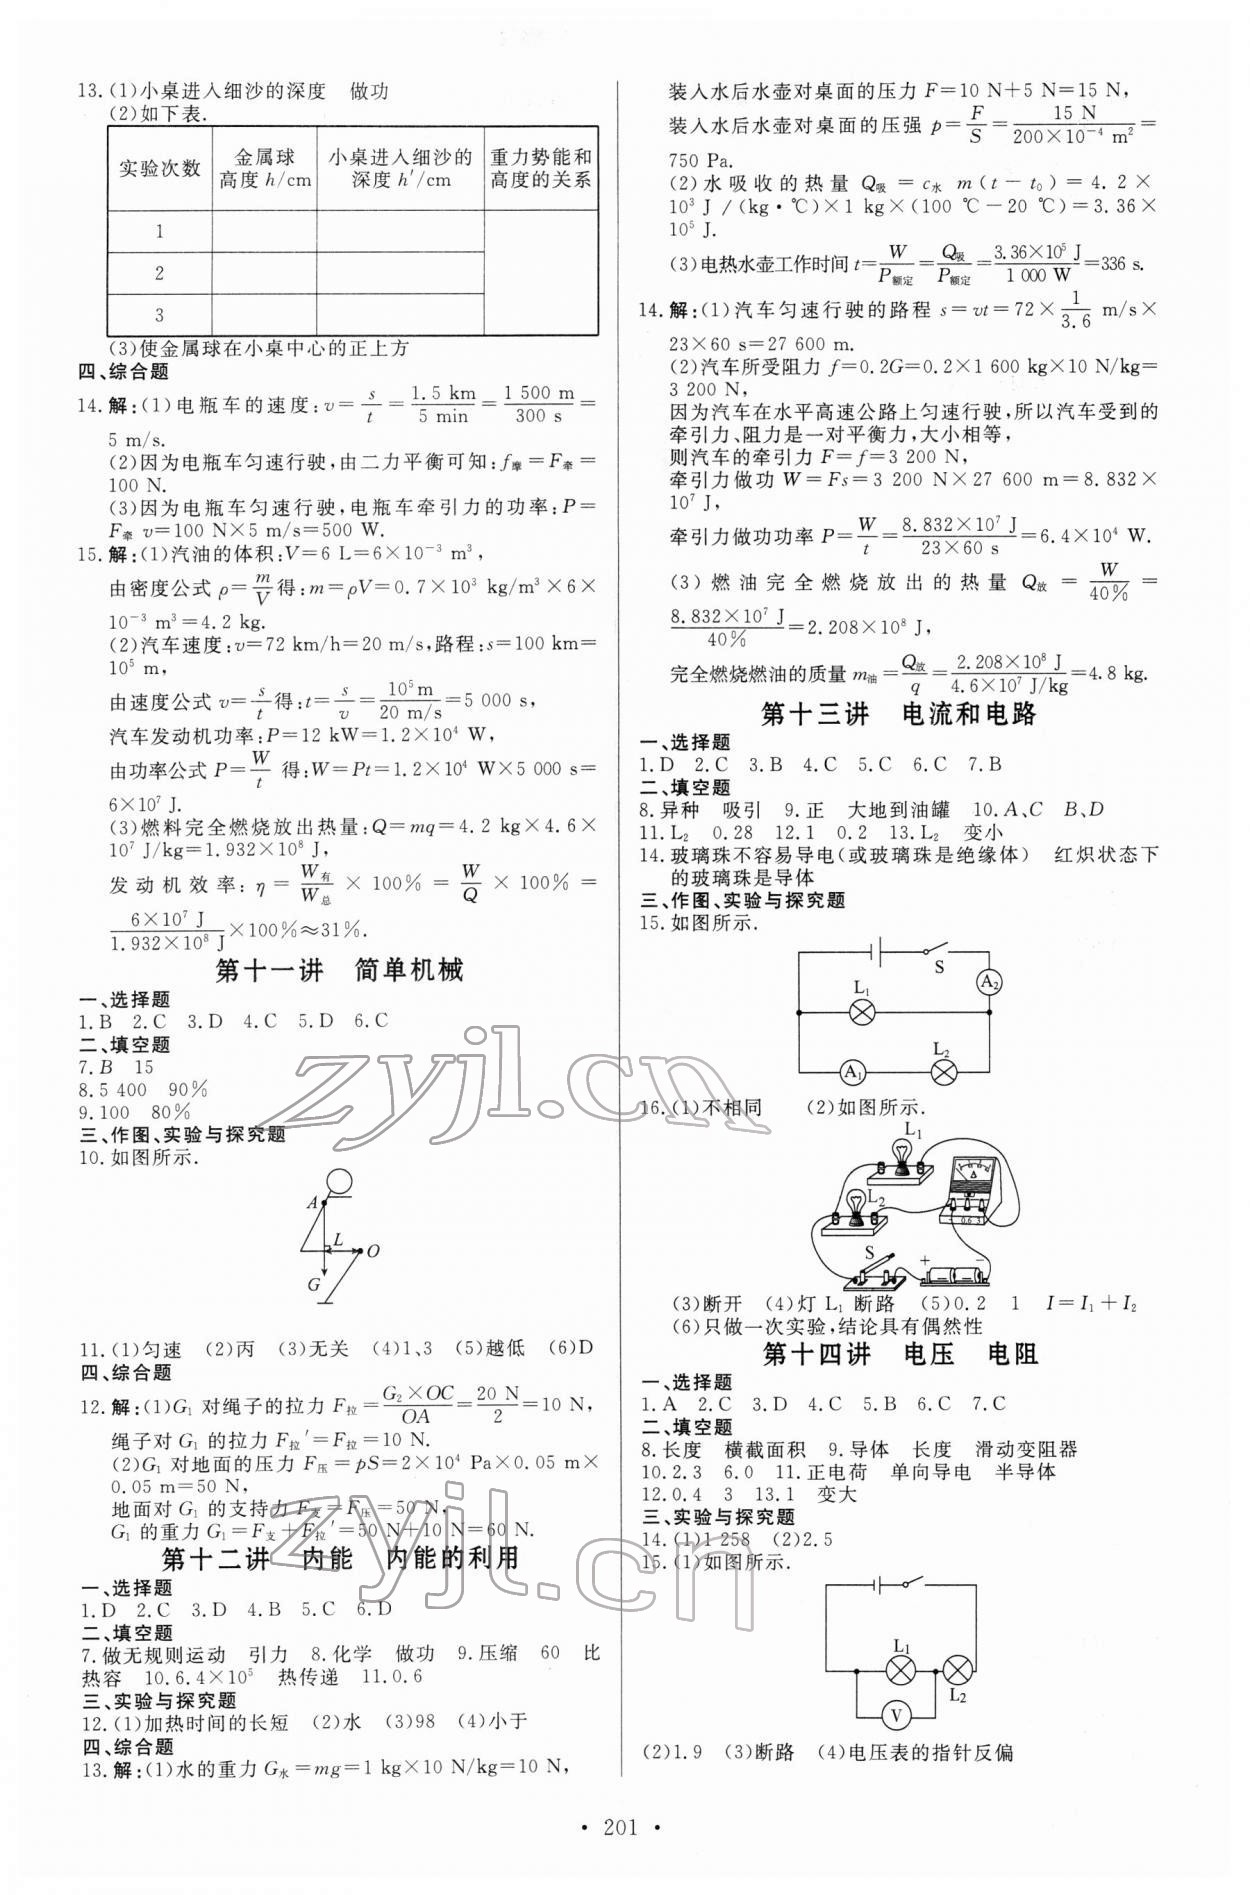 13.(1)小桌进入细沙的深度　做功
(2)如下表.
实验次数　金属球高度 h/cm　小桌进入细沙的深度 h′/cm　重力势能和高度的关系
1
2
3
(3)使金属球在小桌中心的正上方
四、综合题
14.解:(1)电瓶车的速度:v=s/t=1.5 km/5 min=1 500 m/300 s=
5 m/s.
(2)因为电瓶车匀速行驶,由二力平衡可知:f摩=F牵=
100 N.
(3)因为电瓶车匀速行驶,电瓶车牵引力的功率:P=
F牵 v=100 N×5 m/s=500 W.
15.解:(1)汽油的体积:V=6 L=6×10⁻³ m³,
由密度公式 ρ=m/V得:m=ρV=0.7×10³ kg/m³×6×
10⁻³ m³=4.2 kg.
(2)汽车速度:v=72 km/h=20 m/s,路程:s=100 km=
10⁵ m,
由速度公式 v=s/t得:t=s/v=10⁵ m/20 m/s=5 000 s,
汽车发动机功率:P=12 kW=1.2×10⁴ W,
由功率公式 P=W/t 得:W=Pt=1.2×10⁴ W×5 000 s=
6×10⁷ J.
(3)燃料完全燃烧放出热量:Q=mq=4.2 kg×4.6×
10⁷ J/kg=1.932×10⁸ J,
发动机效率:η=W有/W总×100%=W/Q×100%=
6×10⁷ J/1.932×10⁸ J×100%≈31%.
第十一讲　简单机械
一、选择题
1.B 2.C 3.D 4.C 5.D 6.C
二、填空题
7.B 15
8.5 400 90%
9.100 80%
三、作图、实验与探究题
10.如图所示.
A
L
O
G
11.(1)匀速 (2)丙 (3)无关 (4)1、3 (5)越低 (6)D
四、综合题
12.解:(1)G₁ 对绳子的拉力 F拉=G₂×OC/OA=20 N/2=10 N,
绳子对 G₁ 的拉力 F拉′=F拉=10 N.
(2)G₁ 对地面的压力 F压=pS=2×10⁴ Pa×0.05 m×
0.05 m=50 N,
地面对 G₁ 的支持力 F支=F压=50 N,
G₁ 的重力 G₁=F支+F拉′=50 N+10 N=60 N.
第十二讲　内能　内能的利用
一、选择题
1.D 2.C 3.D 4.B 5.C 6.D
二、填空题
7.做无规则运动　引力 8.化学　做功 9.压缩　60　比
热容 10.6.4×10⁵　热传递 11.0.6
三、实验与探究题
12.(1)加热时间的长短 (2)水 (3)98 (4)小于
四、综合题
13.解:(1)水的重力 G水=mg=1 kg×10 N/kg=10 N,
装入水后水壶对桌面的压力 F=10 N+5 N=15 N,
装入水后水壶对桌面的压强 p=F/S=15 N/200×10⁻⁴ m²=
750 Pa.
(2)水吸收的热量 Q吸=c水 m(t-t₀)=4.2×
10³ J/(kg·℃)×1 kg×(100 ℃-20 ℃)=3.36×
10⁵ J.
(3)电热水壶工作时间 t=W/P额定=Q吸/P额定=3.36×10⁵ J/1 000 W=336 s.
14.解:(1)汽车匀速行驶的路程 s=vt=72×1/3.6 m/s×
23×60 s=27 600 m.
(2)汽车所受阻力 f=0.2G=0.2×1 600 kg×10 N/kg=
3 200 N,
因为汽车在水平高速公路上匀速行驶,所以汽车受到的
牵引力、阻力是一对平衡力,大小相等,
则汽车的牵引力 F=f=3 200 N,
牵引力做功 W=Fs=3 200 N×27 600 m=8.832×
10⁷ J,
牵引力做功功率 P=W/t=8.832×10⁷ J/23×60 s=6.4×10⁴ W.
(3)燃油完全燃烧放出的热量 Q放=W/40%=
8.832×10⁷ J/40%=2.208×10⁸ J,
完全燃烧燃油的质量 m油=Q放/q=2.208×10⁸ J/4.6×10⁷ J/kg=4.8 kg.
第十三讲　电流和电路
一、选择题
1.D 2.C 3.B 4.C 5.C 6.C 7.B
二、填空题
8.异种　吸引 9.正　大地到油罐 10.A、C　B、D
11.L₂　0.28 12.1　0.2 13.L₂　变小
14.玻璃珠不容易导电(或玻璃珠是绝缘体)　红炽状态下
的玻璃珠是导体
三、作图、实验与探究题
15.如图所示.
S
A₂
L₁
L₂
A₁
16.(1)不相同 (2)如图所示.
L₁
L₂
A
- 0.6 3
S
+ -
(3)断开 (4)灯 L₁ 断路 (5)0.2　1　I=I₁+I₂
(6)只做一次实验,结论具有偶然性
第十四讲　电压　电阻
一、选择题
1.A 2.C 3.D 4.C 5.C 6.C 7.C
二、填空题
8.长度　横截面积 9.导体　长度　滑动变阻器
10.2.3　6.0 11.正电荷　单向导电　半导体
12.0.4　3 13.1　变大
三、实验与探究题
14.(1)1 258 (2)2.5
15.(1)如图所示.
L₁
L₂
V
(2)1.9 (3)断路 (4)电压表的指针反偏
• 201 •
zyjl.cn
zyjl.cn